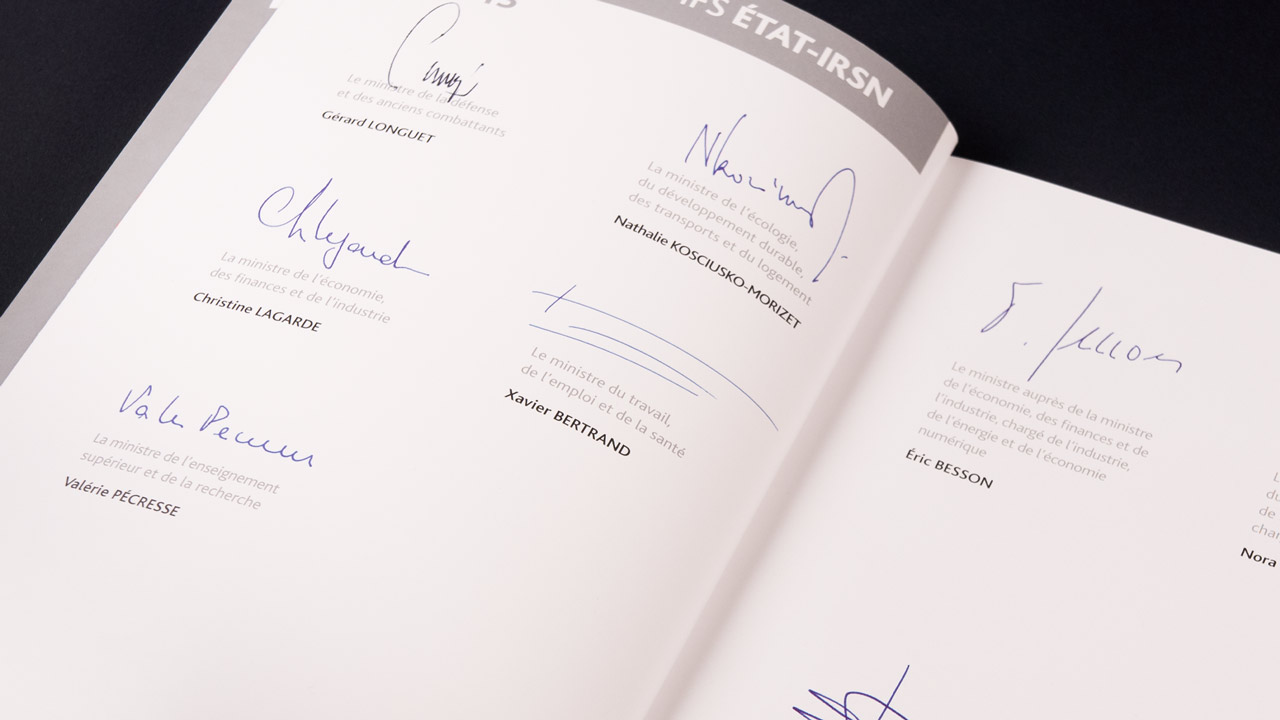 ÉTAT-IRSN
Le ministre de la défense
et des anciens combattants
Gérard LONGUET
La ministre de l'écologie,
du développement durable,
des transports et du logement
Nathalie KOSCIUSKO-MORIZET
La ministre de l'économie,
des finances et de l'industrie
Christine LAGARDE
Le ministre du travail,
de l'emploi et de la santé
Xavier BERTRAND
La ministre de l'enseignement
supérieur et de la recherche
Valérie PÉCRESSE
Le ministre auprès de la ministre
de l'économie, des finances et de
l'industrie, chargé de l'industrie,
de l'énergie et de l'économie
numérique
Éric BESSON
du
de
Nora